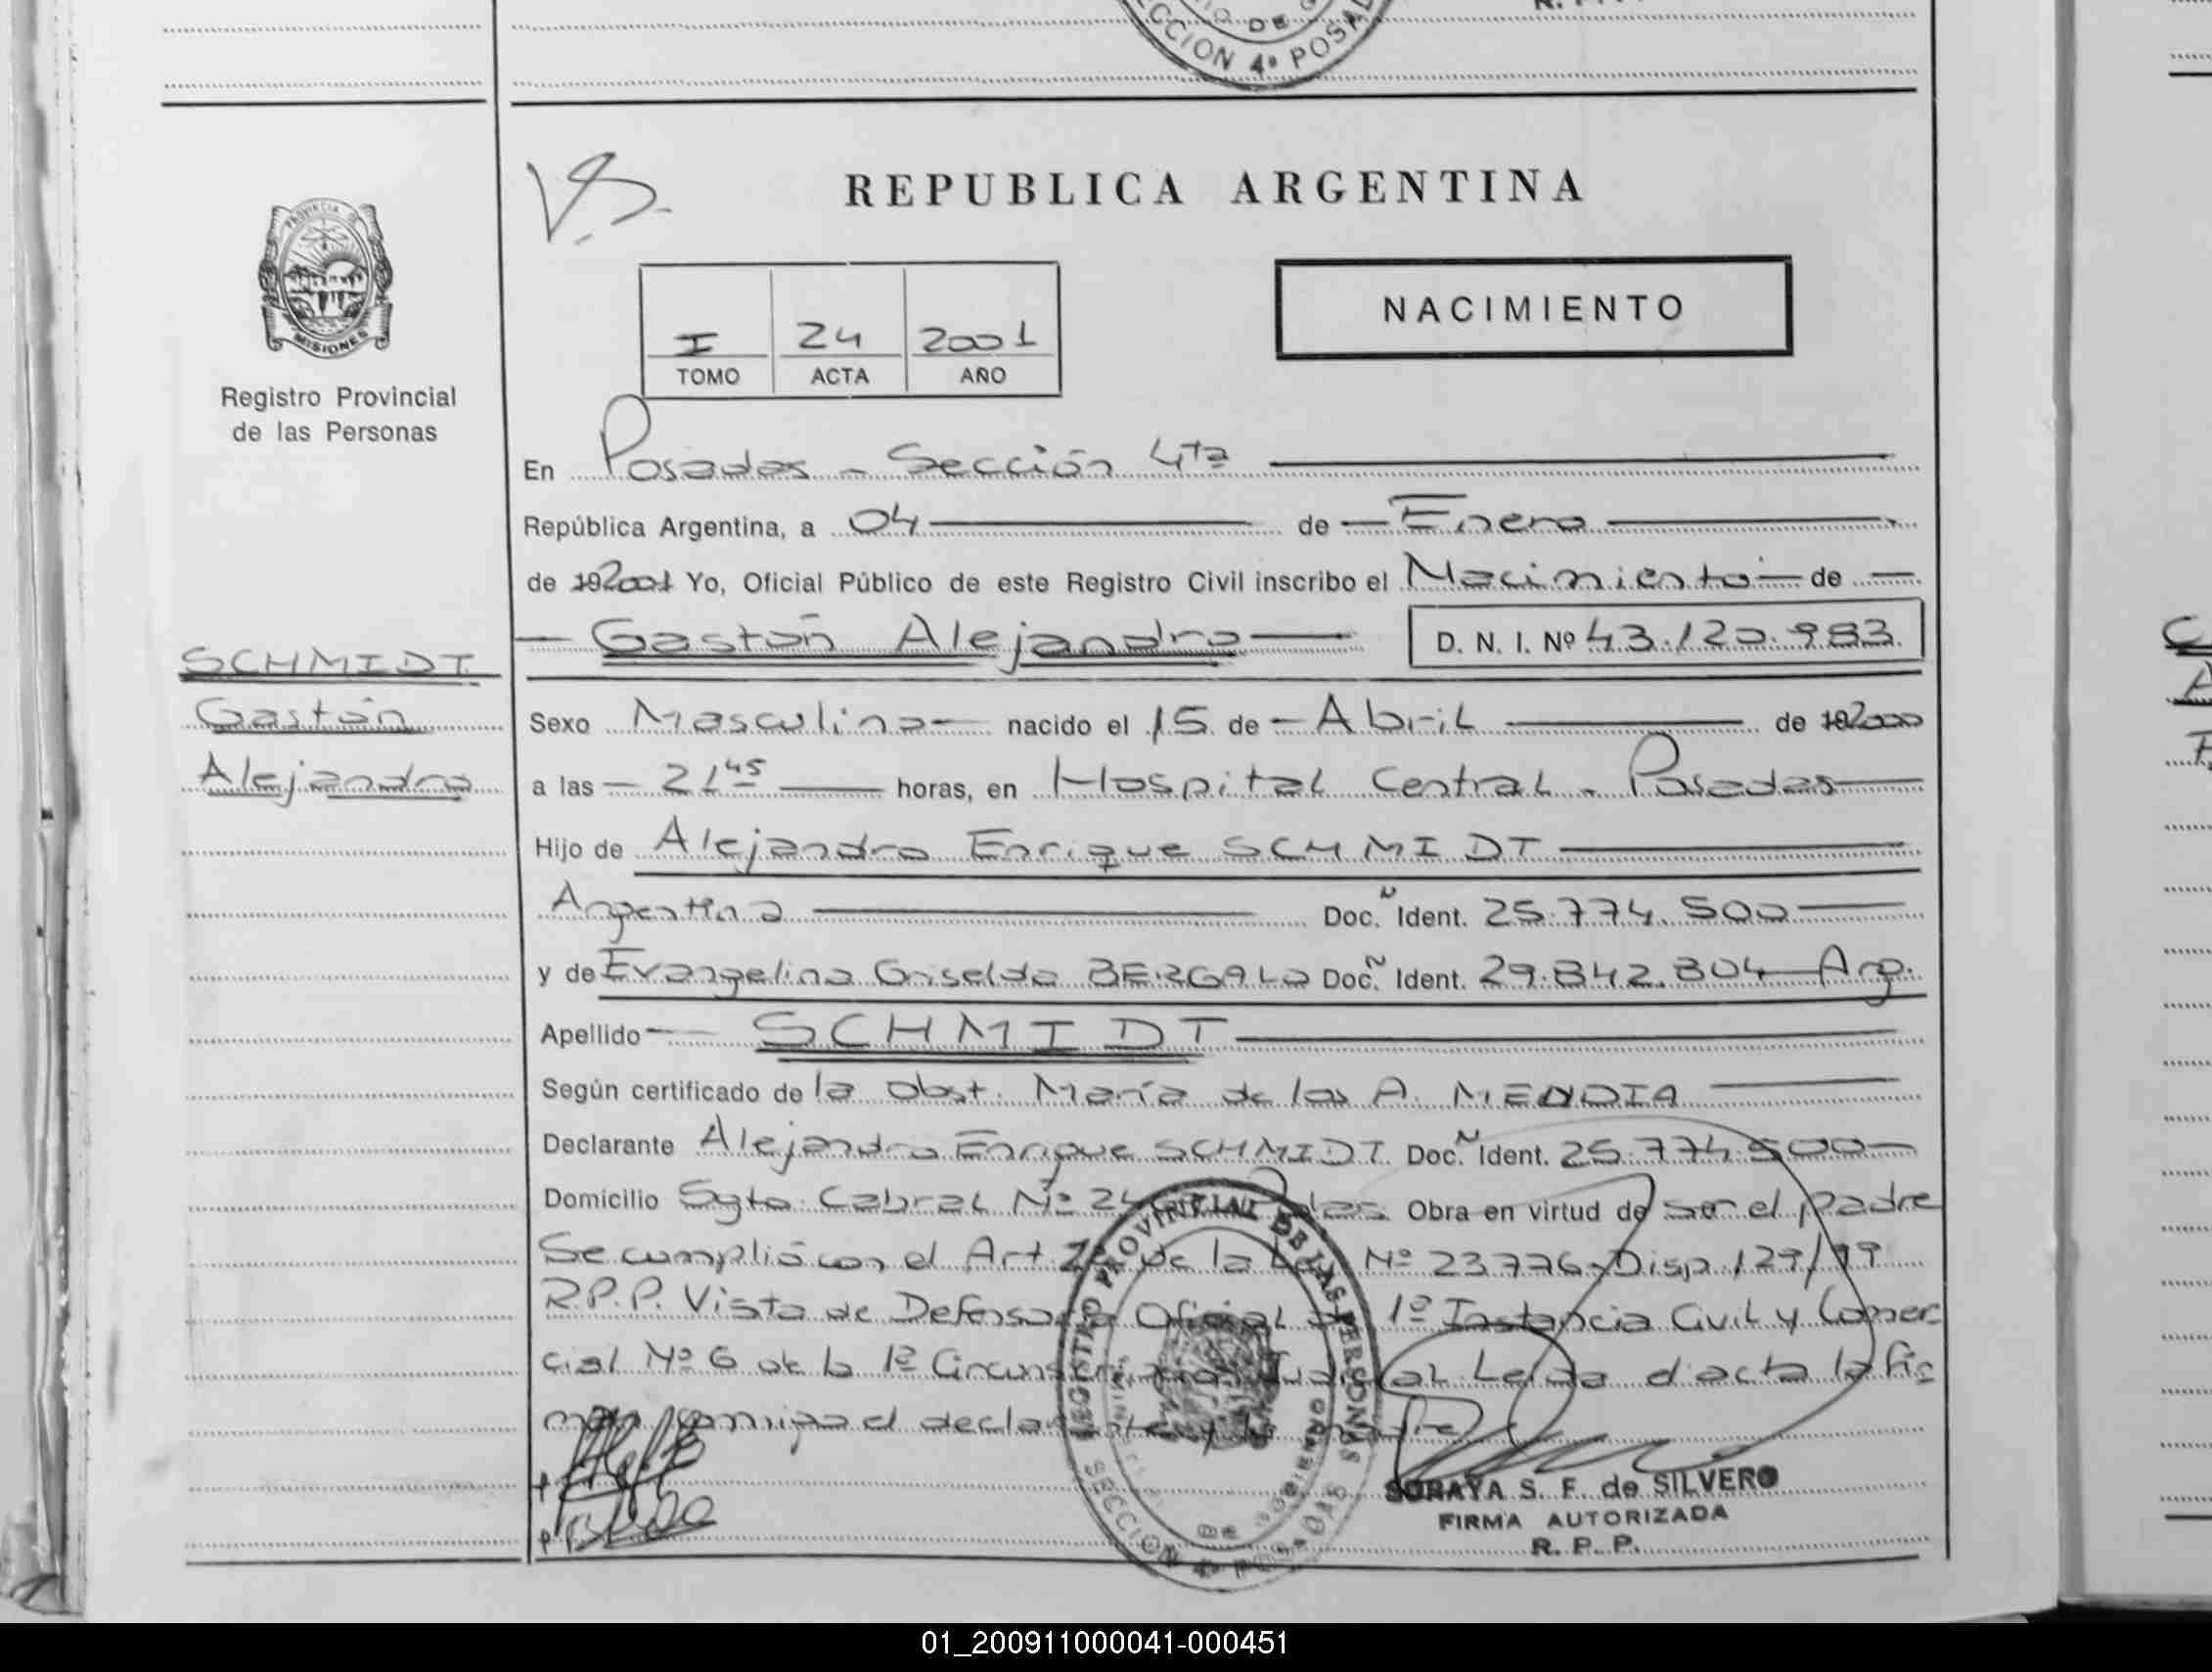 SECCION 4ª POSAD
REPUBLICA ARGENTINA
PROVINCIA DE
MISIONES
Registro Provincial
de las Personas
NACIMIENTO
I 24 2001
TOMO ACTA AÑO
En Posadas - Sección 4ta
República Argentina, a 04 de Enero
de 192001 Yo, Oficial Público de este Registro Civil inscribo el Nacimiento de
Gastón Alejandro D. N. I. Nº 43.120.983.
SCHMIDT
Gastón
Alejandro
Sexo Masculino nacido el 15 de Abril de 192000
a las 21 45 horas, en Hospital Central - Posadas
Hijo de Alejandro Enrique SCHMIDT
Argentina Doc. N Ident. 25.774.500
y de Evangelina Griselda BERGALO Doc. N Ident. 29.842.804 Arg.
Apellido SCHMIDT
Según certificado de la Obst. María de los A. MENDIA
Declarante Alejandro Enrique SCHMIDT Doc. N Ident. 25.774.500
Domicilio Sgto. Cabral Nº Obra en virtud de ser el padre
Se cumplió con el Art. de la Ley Nº 23776 - Disp. 129/99
R.P.P. Vista de Defensoría Oficial de 1º Instancia Civil y Comer-
cial Nº 6 de la 1ª Circunscripción Judicial Leída el acta la fir-
man conmigo el declarante y la madre
REGISTRO PROVINCIAL DE LAS PERSONAS
SECCION 4ª POSADAS
SORAYA S. F. de SILVERO
FIRMA AUTORIZADA
R. P. P.
01_200911000041-000451